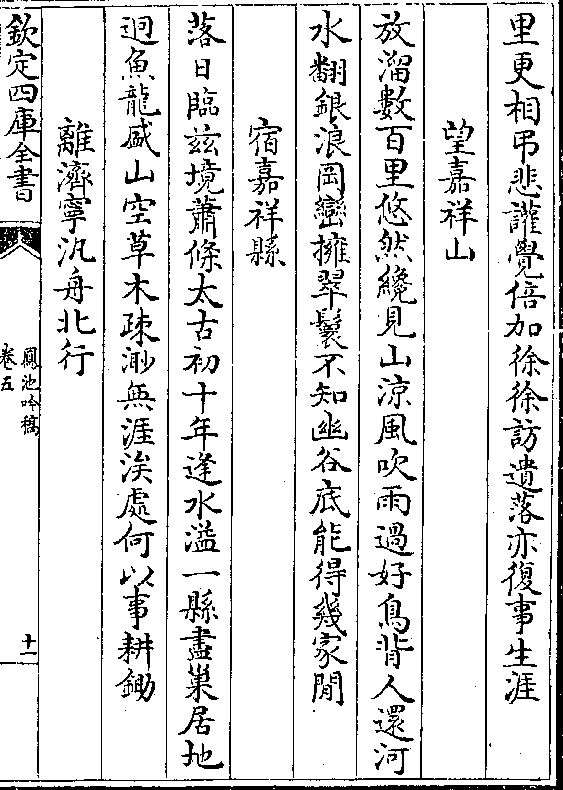 里更相弔悲讙覺倍加徐徐訪遺落亦復事生涯
望嘉祥山
放溜數百里悠然纔見山涼風吹雨過好鳥背人還河
水翻銀浪岡巒擁翠鬟不知幽谷底能得幾家閒
宿嘉祥縣
落日臨兹境蕭條太古初十年逢水溢一縣盡巢居地
迥魚龍盛山空草木疎渺無涯涘處何以事耕鋤
離濟寧汎舟北行
欽定四庫全書
鳳池吟稿
卷五
十一